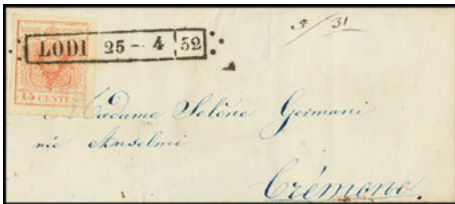 5/31
LODI 25-4 52
15 CENTES
Madame Selène Germani
née Anselmi
Crémone.